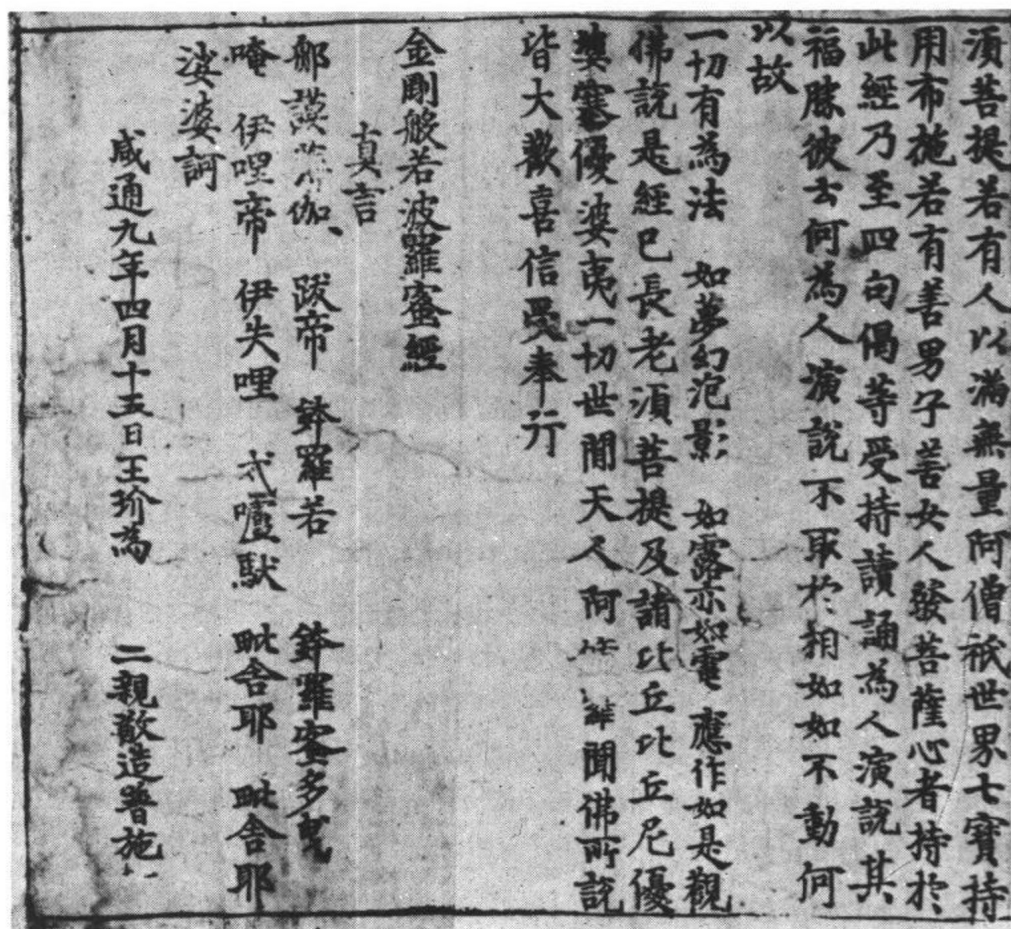 須菩提若有人以滿無量阿僧祇世界七寶持
用布施若有善男子善女人發菩薩心者持於
此經乃至四句偈等受持讀誦為人演說其
福勝彼云何為人演說不取於相如如不動何
以故
一切有為法 如夢幻泡影 如露亦如電 應作如是觀
佛說是經已長老須菩提及諸比丘比丘尼優
婆塞優婆夷一切世間天人阿 聞佛所說
皆大歡喜信受奉行
金剛般若波羅蜜經
真言
那謨 伽 跋帝 鉢羅若 鉢羅蜜多曳
唵 伊哩帝 伊失哩 戍嚧馱 毗舍耶 毗舍耶
娑婆訶
咸通九年四月十五日王玠為 二親敬造普施